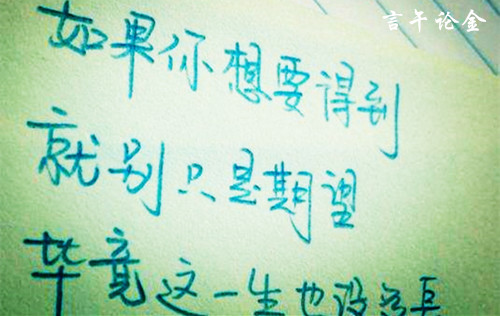 言午论金
如果你想要得到
就别只是期望
毕竟这一生也没多